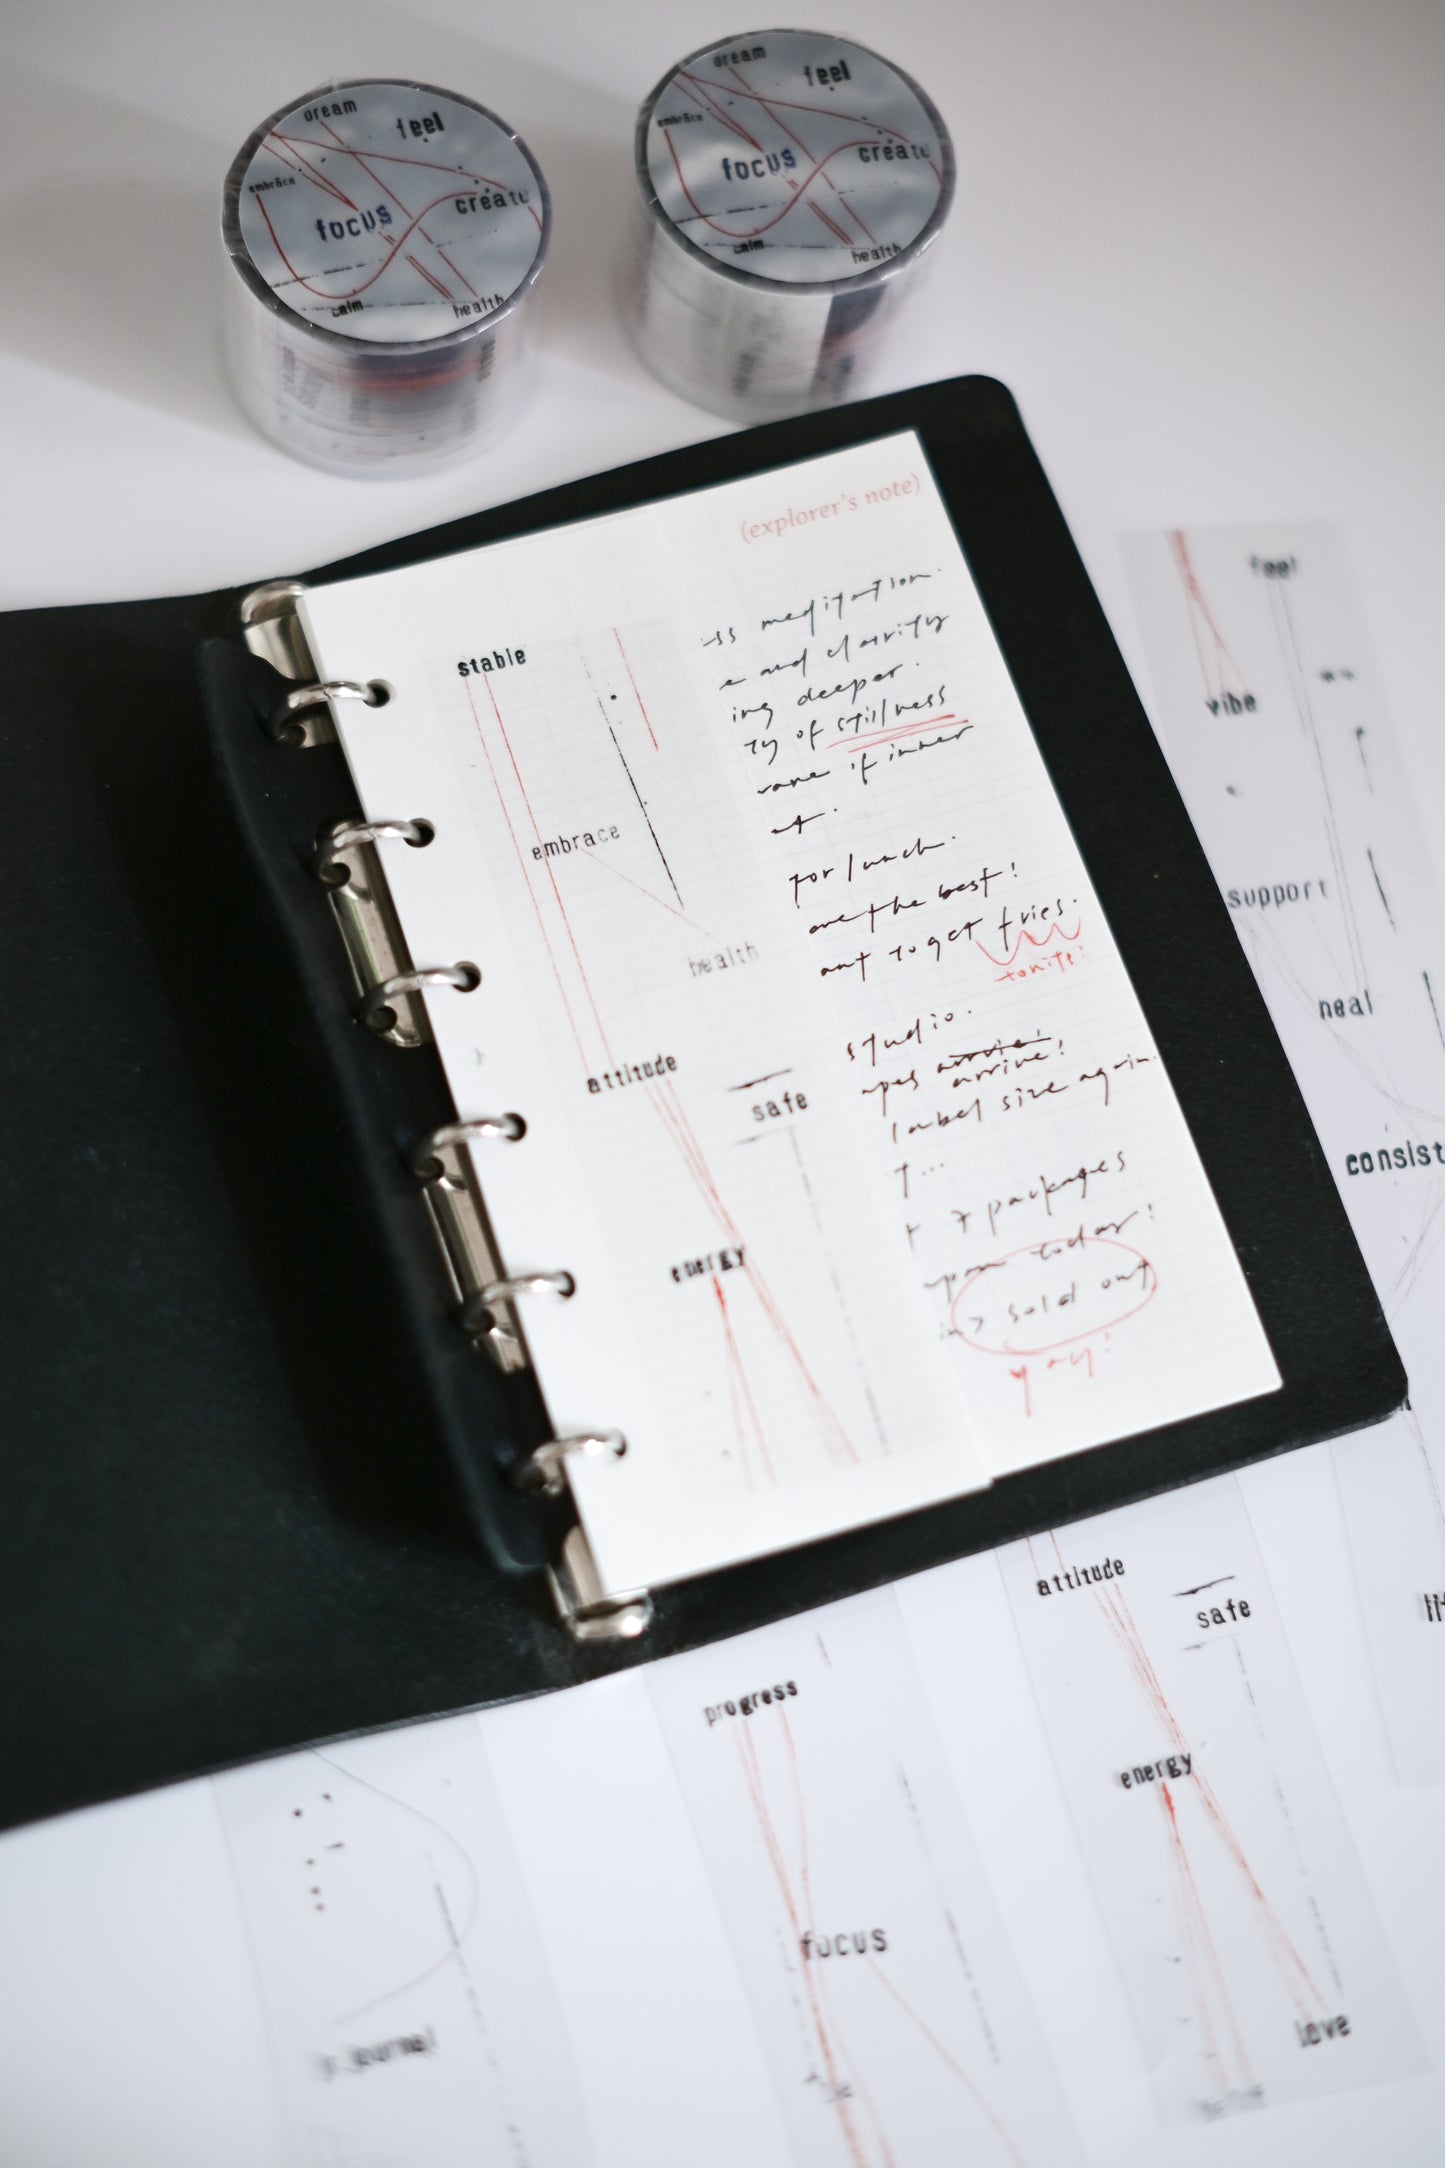 dream
feel
embrace
focus
create
calm
health
dream
feel
embrace
focus
create
calm
health
(explorer's note)
stable
embrace
health
attitude
safe
energy
ss meditation.
e and clarity
ing deeper.
ty of stillness
if inner
for lunch.
are the best!
ant to get fries.
tonite!
studio.
apes arrive!
label size again.
t...
7 packages
upon today!
sold out
yay!
feel
vibe
support
heal
consist
attitude
safe
energy
love
progress
focus
journal